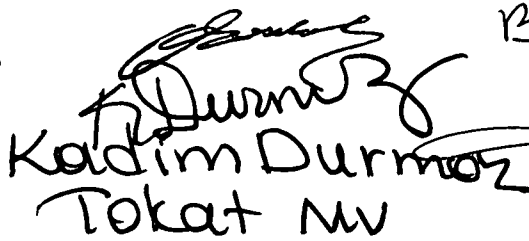 K. Durmaz
Kadim Durmaz
Tokat MV